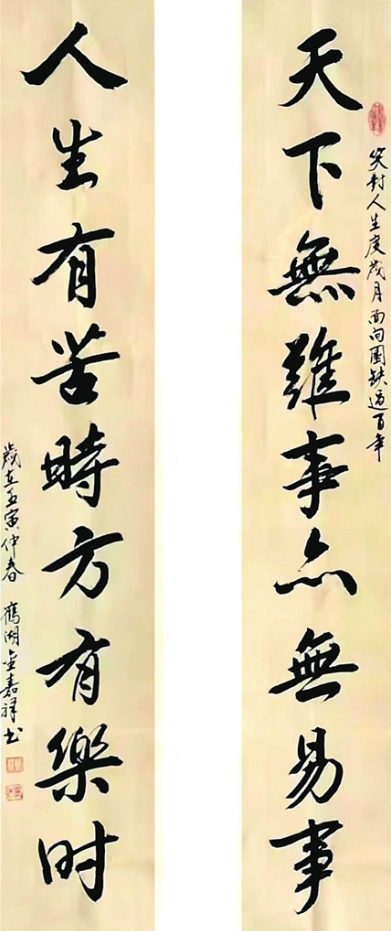 天下無難事亦無易事
笑對人生度歲月面向圓缺過百年
人生有苦時方有樂时
歲在壬寅仲春 鴈湖金嘉祥书